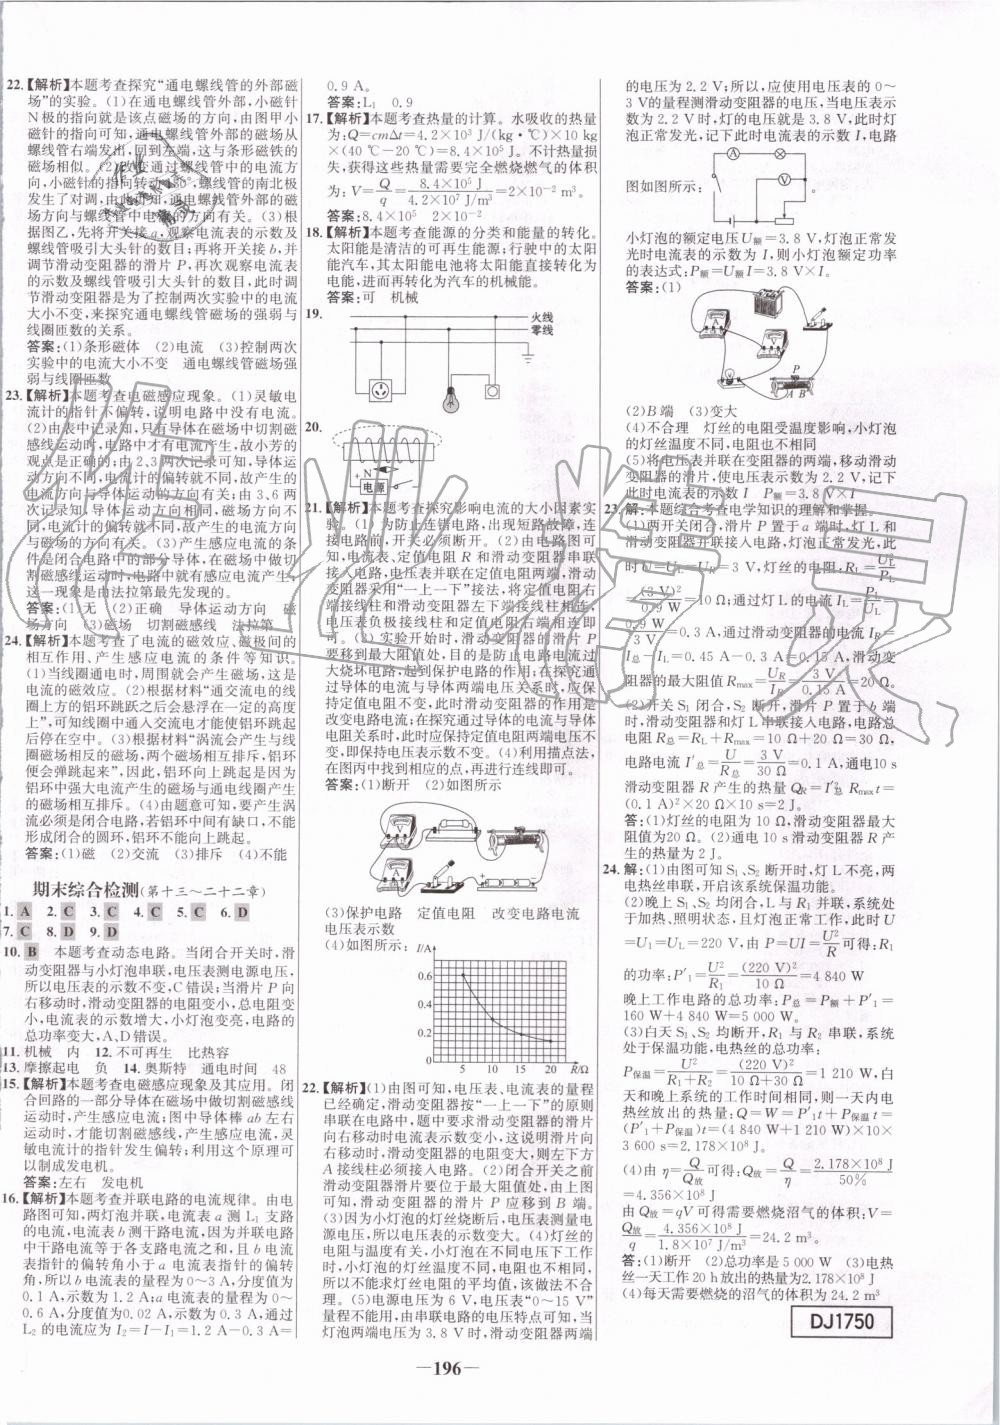 22.【解析】本题考查探究“通电螺线管的外部磁
场”的实验。(1)在通电螺线管外部,小磁针
N极的指向就是该点磁场的方向,由图甲小
磁针的指向可知,通电螺线管的外部磁场从
螺线管右端发出,回到左端,这与条形磁铁的
磁场相似。(2)改变通过螺线管中的电流方
向,小磁针的指向转动180°,螺线管的南北极
发生了对调,由此可知,通电螺线管的外部磁
场方向与螺线管中电流的方向有关。(3)根
据图乙,先将开关接a,观察电流表的示数及
螺线管吸引大头针的数目;再将开关接b,并
调节滑动变阻器的滑片P,再次观察电流表
的示数及螺线管吸引大头针的数目,此时调
节滑动变阻器是为了控制两次实验中的电流
大小不变,来探究通电螺线管磁场的强弱与
线圈匝数的关系。
答案:(1)条形磁体 (2)电流 (3)控制两次
实验中的电流大小不变 通电螺线管磁场强
弱与线圈匝数
23.【解析】本题考查电磁感应现象。(1)灵敏电
流计的指针不偏转,说明电路中没有电流。
(2)由表中记录知,只有导体在磁场中切割磁
感线运动时,电路中才有电流产生,故小芳的
观点是正确的;由2、3两次记录可知,导体运
动方向不同,电流计的偏转就不同,故产生的
电流方向与导体运动的方向有关;由3、6两
次记录知,导体运动方向相同,磁场方向不
同,电流计的偏转就不同,故产生的电流方向
与磁场的方向有关。(3)产生感应电流的条
件是闭合电路中的部分导体,在磁场中做切
割磁感线运动时,电路中就有感应电流产生,
这一现象是由法拉第最先发现的。
答案:(1)无 (2)正确 导体运动方向 磁
场方向 (3)磁场 切割磁感线 法拉第
24.【解析】本题考查了电流的磁效应、磁极间的
相互作用、产生感应电流的条件等知识。
(1)当线圈通电时,周围就会产生磁场,这是
电流的磁效应。(2)根据材料“通交流电的线
圈上方的铝环跳跃之后会悬浮在一定的高度
上”,可知线圈中通入交流电才能使铝环跳起
后停在空中。(3)根据材料“涡流会产生与线
圈磁场相反的磁场,两个磁场相互排斥,铝环
便会弹跳起来”,因此,铝环向上跳起是因为
铝环中强大电流产生的磁场与通电线圈产生
的磁场相互排斥。(4)由题意可知,要产生涡
流必须是闭合电路,若铝环中间有缺口,不能
形成闭合的圆环,铝环不能向上跳起。
答案:(1)磁 (2)交流 (3)排斥 (4)不能
期末综合检测(第十三～二十二章)
1. A 2. C 3. C 4. C 5. C 6. D
7. C 8. D 9. D
10. B 本题考查动态电路。当闭合开关时,滑
动变阻器与小灯泡串联,电压表测电源电压,
所以电压表的示数不变,C错误;当滑片P向
右移动时,滑动变阻器的电阻变小,总电阻变
小,电流表的示数增大,小灯泡变亮,电路的
总功率变大,A、D错误。
11. 机械 内 12. 不可再生 比热容
13. 摩擦起电 负 14. 奥斯特 通电时间 48
15.【解析】本题考查电磁感应现象及其应用。闭
合回路的一部分导体在磁场中做切割磁感线
运动时,产生感应电流;图中导体棒ab左右
运动时,才能切割磁感线,产生感应电流,灵
敏电流计的指针发生偏转;利用这个原理可
以制成发电机。
答案:左右 发电机
16.【解析】本题考查并联电路的电流规律。由电
路图可知,两灯泡并联,电流表a测L₁支路
的电流,电流表b测干路电流,因为并联电路
中干路电流等于各支路电流之和,且b电流
表指针的偏转角小于a电流表指针的偏转
角,所以b电流表的量程为0～3 A,分度值为
0.1 A,示数为1.2 A;a电流表的量程为0～
0.6 A,分度值为0.02 A,示数为0.3 A,通过
L₂的电流应为I₂=I-I₁=1.2 A-0.3 A=
0.9 A。
答案:L₁ 0.9
17.【解析】本题考查热量的计算。水吸收的热量
为:Q=cmΔt=4.2×10³ J/(kg·℃)×10 kg
×(40 ℃-20 ℃)=8.4×10⁵ J。不计热量损
失,获得这些热量需要完全燃烧燃气的体积
为:V=Q/q=8.4×10⁵ J/4.2×10⁷ J/m³=2×10⁻² m³。
答案:8.4×10⁵ 2×10⁻²
18.【解析】本题考查能源的分类和能量的转化。
太阳能是清洁的可再生能源;行驶中的太阳
能汽车,其太阳能电池将太阳能直接转化为
电能,进而再转化为汽车的机械能。
答案:可 机械
19. 火线
零线
20.
N
+ 电源 -
21.【解析】本题考查探究影响电流的大小因素实
验。(1)为防止连错电路,出现短路故障,连
接电路前,开关必须断开。(2)由电路图可
知,电流表、定值电阻R和滑动变阻器串联
接入电路,电压表并联在定值电阻两端,滑动
变阻器采用“一上一下”接法,将定值电阻右
端接线柱和滑动变阻器左下端接线柱相连,
电压表负极接线柱和定值电阻右端相连即
可。(3)实验开始时,滑动变阻器的滑片P要
移到最大阻值处,目的是防止电路电流过
大烧坏电路,起到保护电路的作用;在探究通
过导体的电流与导体两端电压关系时,应保
持定值电阻不变,此时滑动变阻器的作用是
改变电路电流;在探究通过导体的电流与导体
电阻关系时,此时应保持定值电阻两端电压不
变,即保持电压表示数不变。(4)利用描点法,
在图丙中找到相应的点,再进行连线即可。
答案:(1)断开 (2)如图所示
(3)保护电路 定值电阻 改变电路电流
电压表示数
(4)如图所示
I/A
0.6
0.4
0.2
0 5 10 15 20 R/Ω
22.【解析】(1)由图可知,电压表、电流表的量程
已经确定,滑动变阻器按“一上一下”的原则
串联在电路中,题中要求滑动变阻器的滑片
向右移动时电流表示数变小,这说明滑片向
右移动时,滑动变阻器的阻值变大,则左下方
A接线柱必须接入电路。(2)闭合开关之前
滑动变阻器滑片要位于最大阻值处,由上图
可知,滑动变阻器的滑片P应移到B端。
(3)因为小灯泡的灯丝烧断后,电压表测量电
源电压,所以电压表的示数变大。(4)灯丝的
电阻与温度有关,小灯泡在不同电压下工作
时,灯丝的温度不同,导致灯丝的电阻不同,
所以不能求灯丝电阻的平均值,该做法不合
理。(5)电源电压为6 V,电压表“0～15 V”
量程不能用,由串联电路的电压特点可知,当
灯泡两端电压为3.8 V时,滑动变阻器两端
的电压为2.2 V;所以,应使用电压表的0～
3 V的量程测滑动变阻器的电压,当电压表示
数为2.2 V时,灯的电压就是3.8 V,此时灯
泡正常发光,记下此时电流表的示数I,电路
图如图所示:
小灯泡的额定电压U额=3.8 V,灯泡正常发
光时电流表的示数为I,则小灯泡额定功率
的表达式:P额=U额I=3.8 V×I。
答案:(1)
P
A B
(2)B端 (3)变大
(4)不合理 灯丝的电阻受温度影响,小灯泡
的灯丝温度不同,电阻也不相同
(5)将电压表并联在变阻器的两端,移动滑动
变阻器的滑片,使电压表示数为2.2 V,记下
此时电流表的示数I P额=3.8 V×I
23. 解:本题综合考查电学知识的理解和掌握。
(1)两开关闭合,滑片P置于a端时,灯L和
滑动变阻器并联接入电路,灯泡正常发光,此
时U=UL=UR=3 V,灯丝的电阻,RL=U²L/PL
=(3 V)²/0.9 W=10 Ω;通过灯L的电流IL=PL/UL=
0.9 W/3 V=0.3 A,通过滑动变阻器的电流IR=
I总-IL=0.45 A-0.3 A=0.15 A,滑动变
阻器的最大阻值Rmax=UR/IR=3 V/0.15 A=20 Ω。
(2)开关S₁闭合,S₂断开,滑片P置于b端
时,滑动变阻器和灯L串联接入电路,电路总
电阻R总=RL+Rmax=10 Ω+20 Ω=30 Ω,
电路电流I′总=U/R总=3 V/30 Ω=0.1 A,通电10 s
滑动变阻器R产生的热量QR=I′²总Rmaxt=
(0.1 A)²×20 Ω×10 s=2 J。
答:(1)灯丝的电阻为10 Ω,滑动变阻器最大
阻值为20 Ω。(2)通电10 s滑动变阻器R产
生的热量为2 J。
24. 解:(1)由图可知S₁、S₂断开时,灯L不亮,两
电热丝串联,开启该系统保温功能。
(2)晚上S₁、S₂均闭合,L与R₁并联,系统处
于加热、照明状态,且灯泡正常工作,此时U
=U₁=UL=220 V,由P=UI=U²/R可得:R₁
的功率:P′₁=U²/R₁=(220 V)²/10 Ω=4 840 W
晚上工作电路的总功率:P总=P额+P′₁=
160 W+4 840 W=5 000 W。
(3)白天S₁、S₂均断开,R₁与R₂串联,系统
处于保温功能,电热丝的总功率:
P保温=U²/R₁+R₂=(220 V)²/10 Ω+30 Ω=1 210 W,白
天和晚上系统的工作时间相同,则一天内电
热丝放出的热量:Q=W=P′₁t+P保温t=
(P′₁+P保温)t=(4 840 W+1 210 W)×10×
3 600 s=2.178×10⁸ J。
(4)由η=Q/Q放可得:Q放=Q/η=2.178×10⁸ J/50%
=4.356×10⁸ J
由Q放=qV可得需要燃烧沼气的体积:V=
Q放/q=4.356×10⁸ J/1.8×10⁷ J/m³=24.2 m³。
答:(1)断开 (2)总功率是5 000 W (3)电热
丝一天工作20 h放出的热量为2.178×10⁸ J
(4)每天需要燃烧的沼气的体积为24.2 m³
DJ1750
—196—